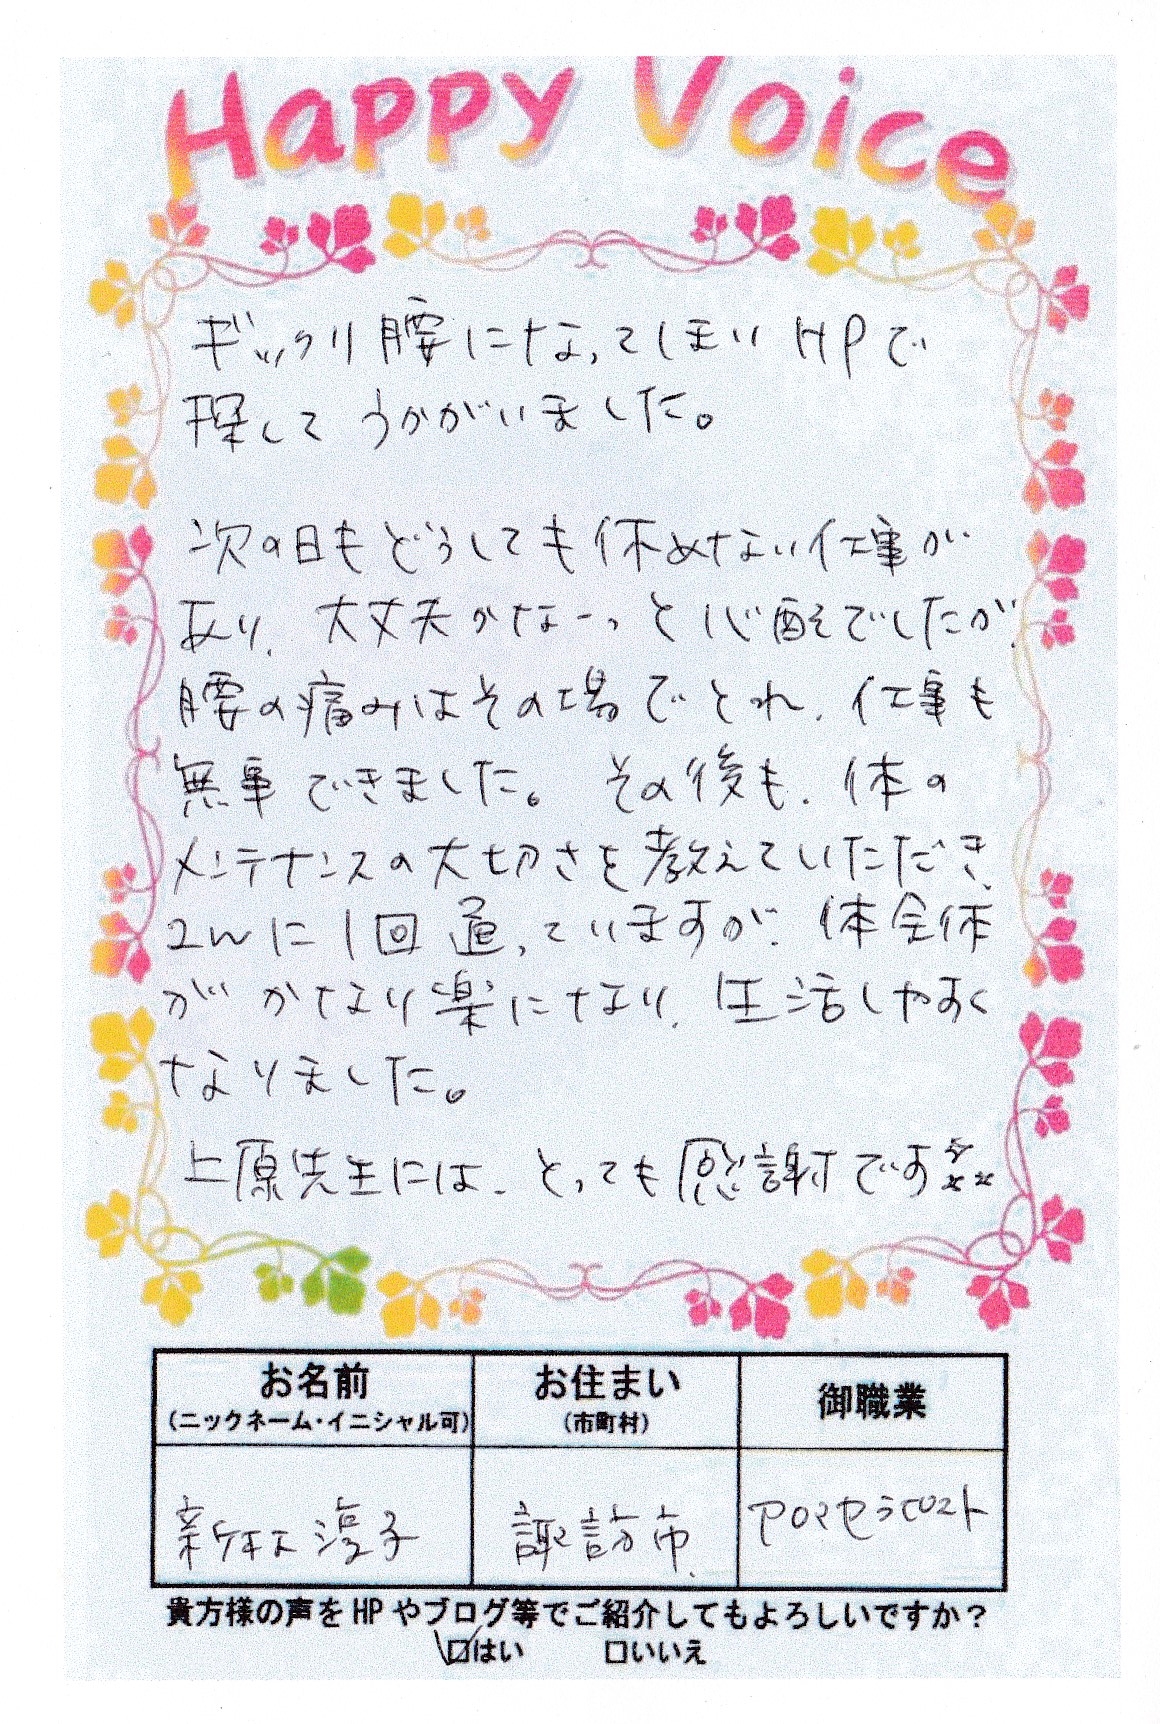 Happy Voice
ギックリ腰になってしまい HPで
探して うかがいました。
次の日もどうしても休めない仕事が
あり、大丈夫かなーっと心配でしたが、
腰の痛みはその場でとれ、仕事も
無事できました。その後も、体の
メンテナンスの大切さを教えていただき、
2wに1回通っていますが、体全体
がかなり楽になり、生活しやすく
なりました。
上原先生には、とっても感謝です
お名前 お住まい 御職業
(ニックネーム・イニシャル可) (市町村)
淳子 諏訪市 アロマセラピスト
貴方様の声をHPやブログ等でご紹介してもよろしいですか?
☑はい □いいえ